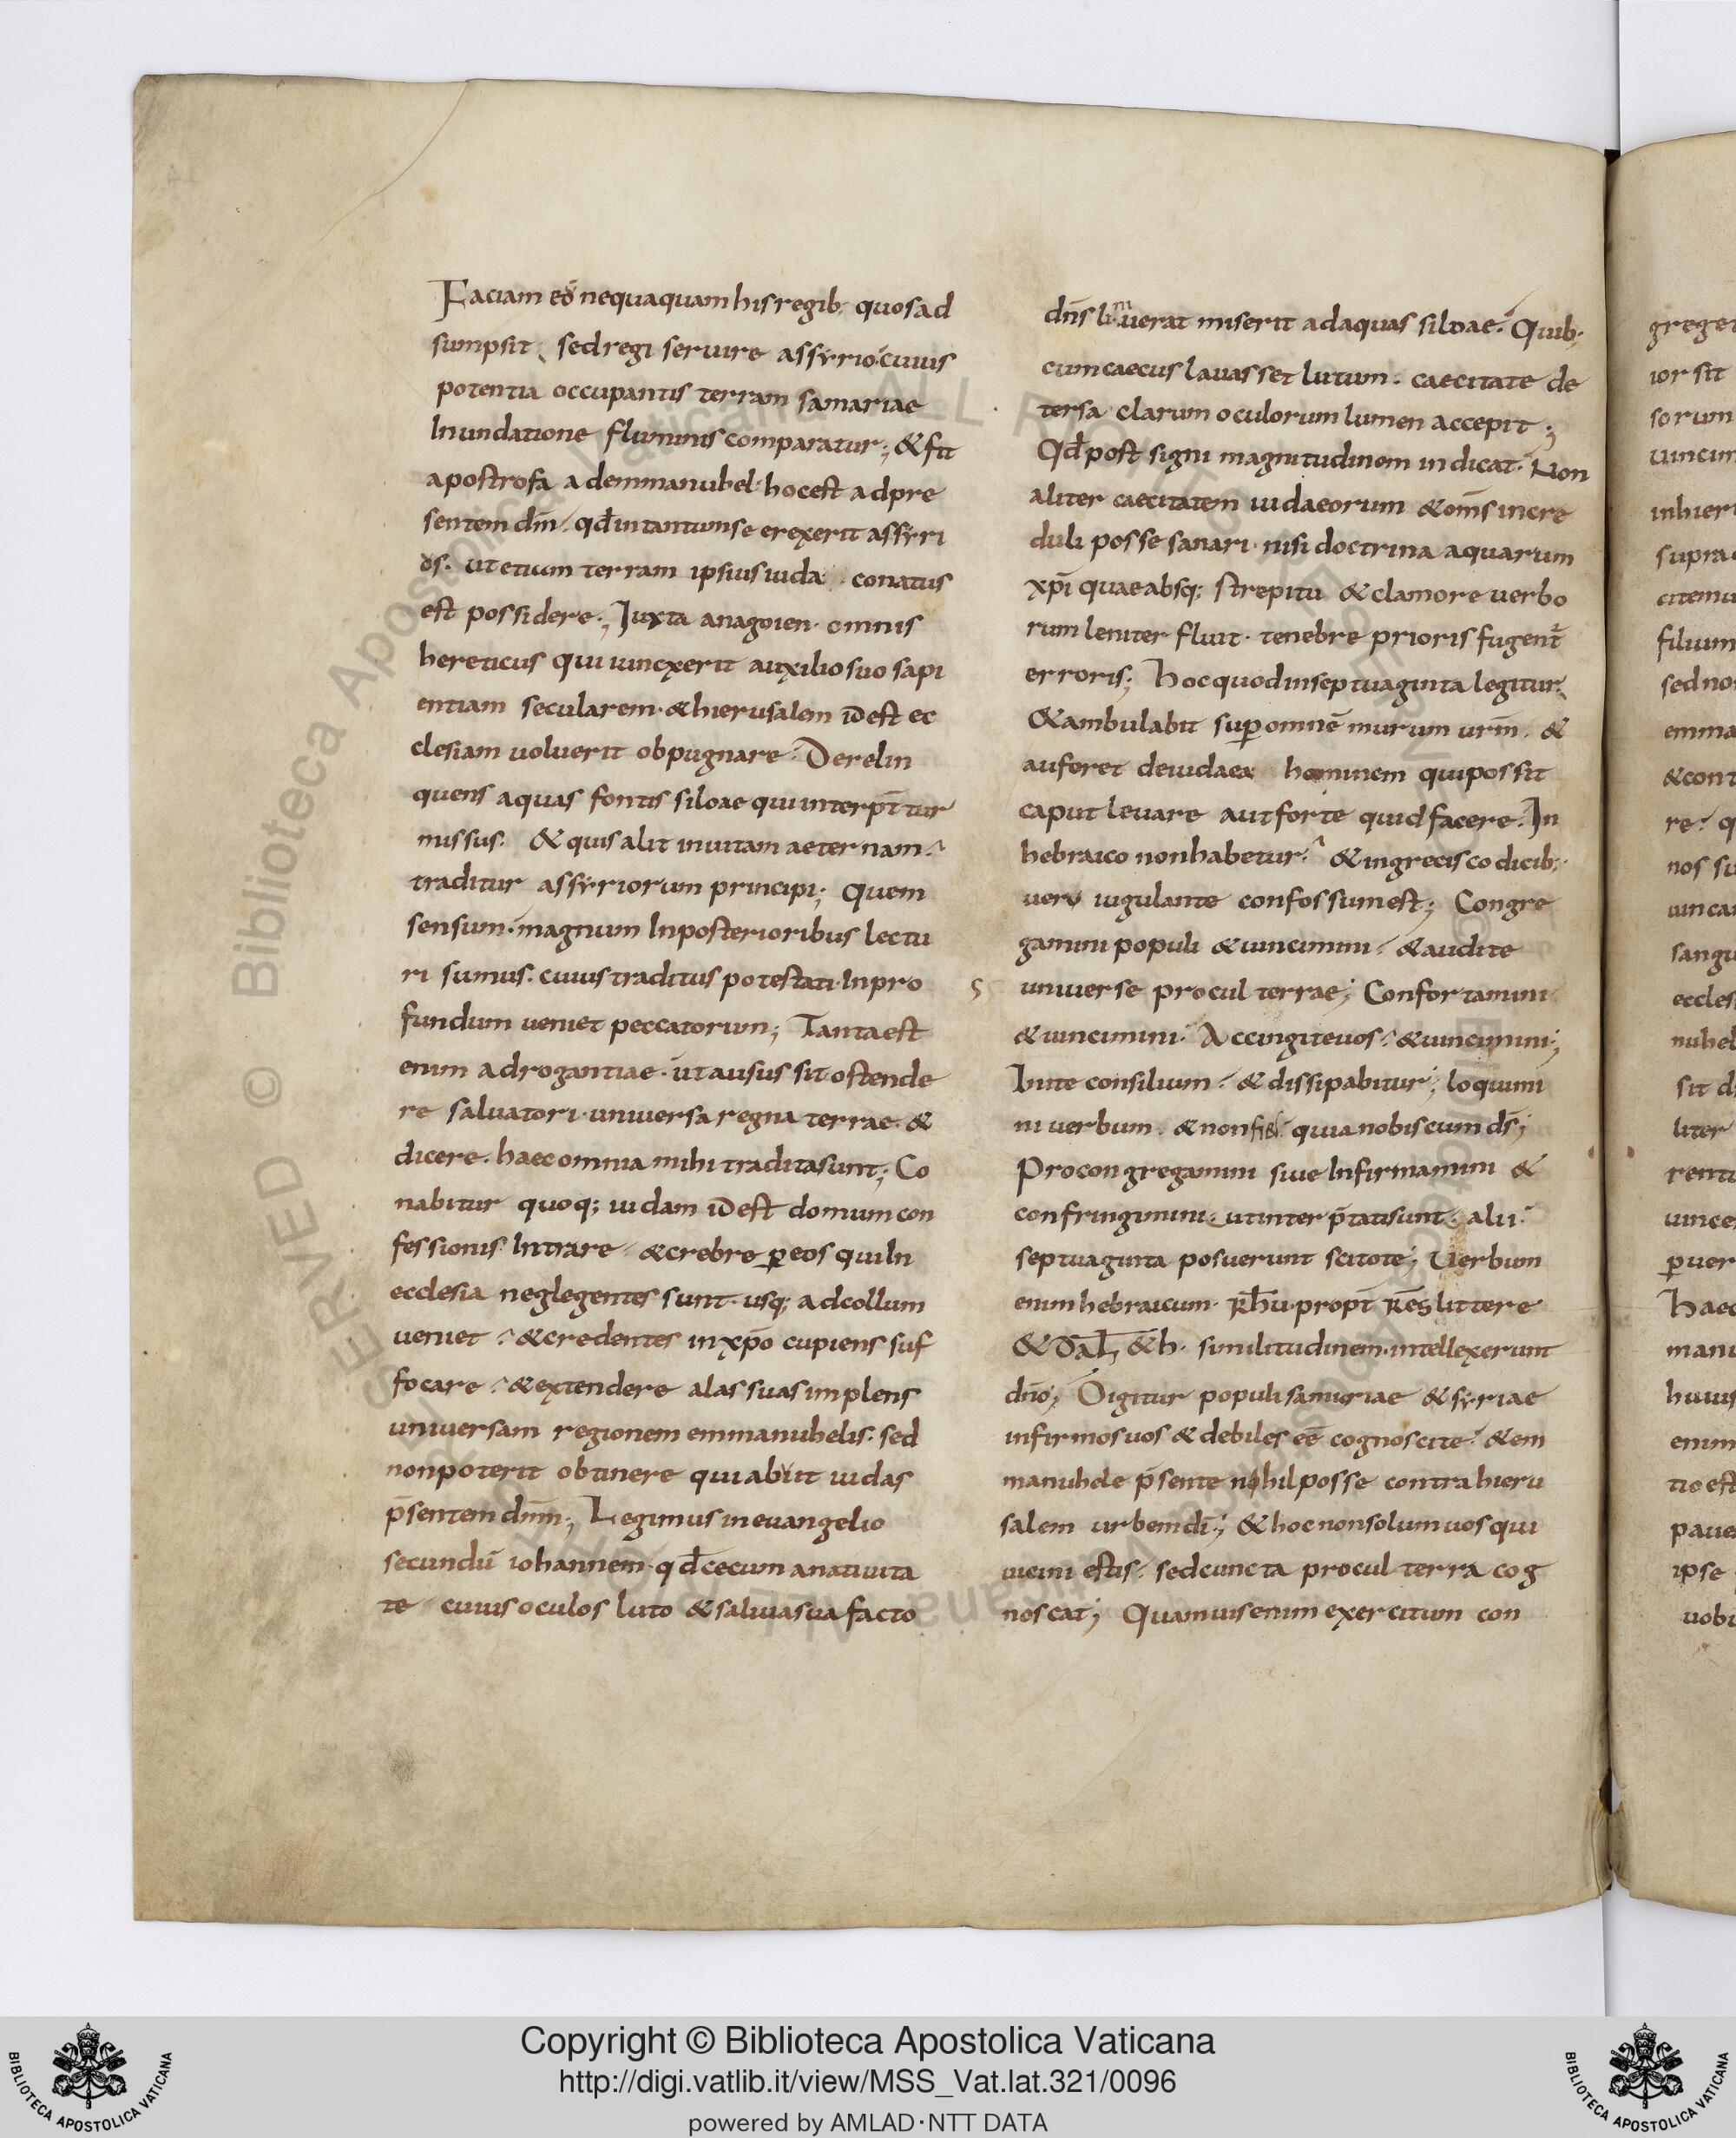 Faciam eos nequaquam his regib; quos ad
sumpsit, sed regi seruire assyrio cuius
potentia occupantis terram samariae
Inundatione fluminis comparatur; & fit
apostrofa ad emmanuhel hoc est ad pre
sentem dm̄. qd̄ intantum se erexerit assyri
us. ut etium terram ipsius iuda conatus
est possidere; Iuxta anagogen omnis
hereticus qui iunxerit auxilio suo sapi
entiam secularem & hierusalem id est ec
clesiam uoluerit obpugnare Derelin
quens aquas fontis siloae qui interp̄tatur
missus. & quis alit in uitam aeternam.
traditur assyriorum principi; Quem
sensum magnum In posterioribus lectu
ri sumus. cuius traditus potestati In pro
fundum ueniet peccatorum; Tanta est
enim adrogantiae ut ausus sit ostende
re saluatori uniuersa regna terrae &
dicere. haec omnia mihi tradita sunt; Co
nabitur quoq; iudam id est domum con
fessionis Intrare & crebre p̱ eos qui In
ecclesia neglegentes sunt. usq; ad collum
ueniet & credentes in xp̄o cupiens suf
focare & extendere alas suas implens
uniuersam regionem emmanuhelis. sed
non poterit obtinere qui abuit iudas
p̄sentem dnm̄; Legimus in euangelio
secundū iohannem qd̄ cecum a natiuita
te cuius oculos luto & saliua sua facto
dn̄s linuerat miserit ad aquas siloae. Quib;
cum caecus lauasset lutum. caecitate de
tersa clarum oculorum lumen accepit;
Qd̄ post signi magnitudinem indicat. Non
aliter caecitatem iudaeorum & om̄s incre
duli posse sanari nisi doctrina aquarum
xp̄i quae absq; strepitu & clamore uerbo
rum leniter fluit. tenebre prioris fugent̄
erroris; Hoc quod in septuaginta legitur
& ambulabit sup̱ omnē murum urm̄. &
auferet de iudaea hominem qui possit
caput leuare aut forte quid facere. In
hebraico non habetur. & in grecis codicib;
ueru iugulante confossum est; Congre
gamini populi & uincimini & audite
uniuerse procul terrae; Confortamini
& uincimini. Accingite uos & uincimini;
Inite consilium & dissipabitur; loquimi
ni uerbum & non fiet quia nobiscum ds̄;
Pro congregamini siue Infirmamini &
confringimini. ut interp̄tati sunt alii
septuaginta posuerunt scitote; Uerbum
enim hebraicum propt̄ littere
& & h. similitudinem intellexerunt
duo; O igitur populi samariae & syriae
infirmos uos & debiles eē cognoscite & em
manuhele p̄sente nihil posse contra hieru
salem urbem dī; & hoc non solum uos qui
uicini estis sed cuncta procul terra cog
noscat; Quamuis enim exercitum con
Copyright © Biblioteca Apostolica Vaticana
http://digi.vatlib.it/view/MSS_Vat.lat.321/0096
powered by AMLAD·NTT DATA